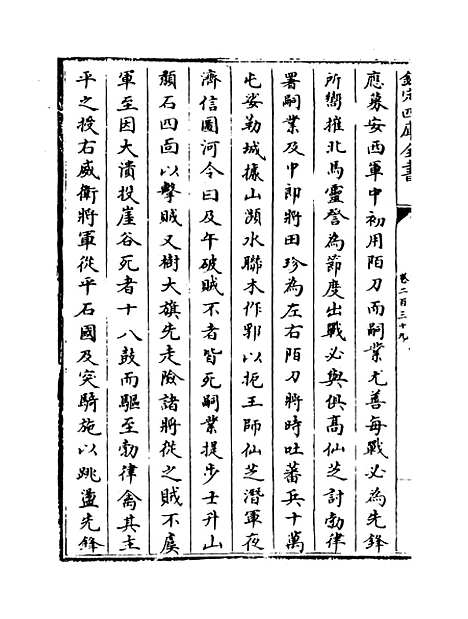 欽定四庫全書
卷二百三十九
應募安西軍中初用陌刀而嗣業尤善每戰必為先鋒
所嚮摧北馬靈詧為節度出戰必與俱高仙芝討勃律
署嗣業及中郎將田珍為左右陌刀將時吐蕃兵十萬
屯娑勒城據山瀕水聯木作郛以扼王師仙芝潛軍夜
濟信圖河令曰及午破賊不者皆死嗣業提步士升山
頹石四面以擊賊又樹大旗先走險諸將從之賊不虞
軍至因大潰投崖谷死者十八鼓而驅至勃律禽其主
平之授右威衛將軍從平石國及突騎施以跳盪先鋒